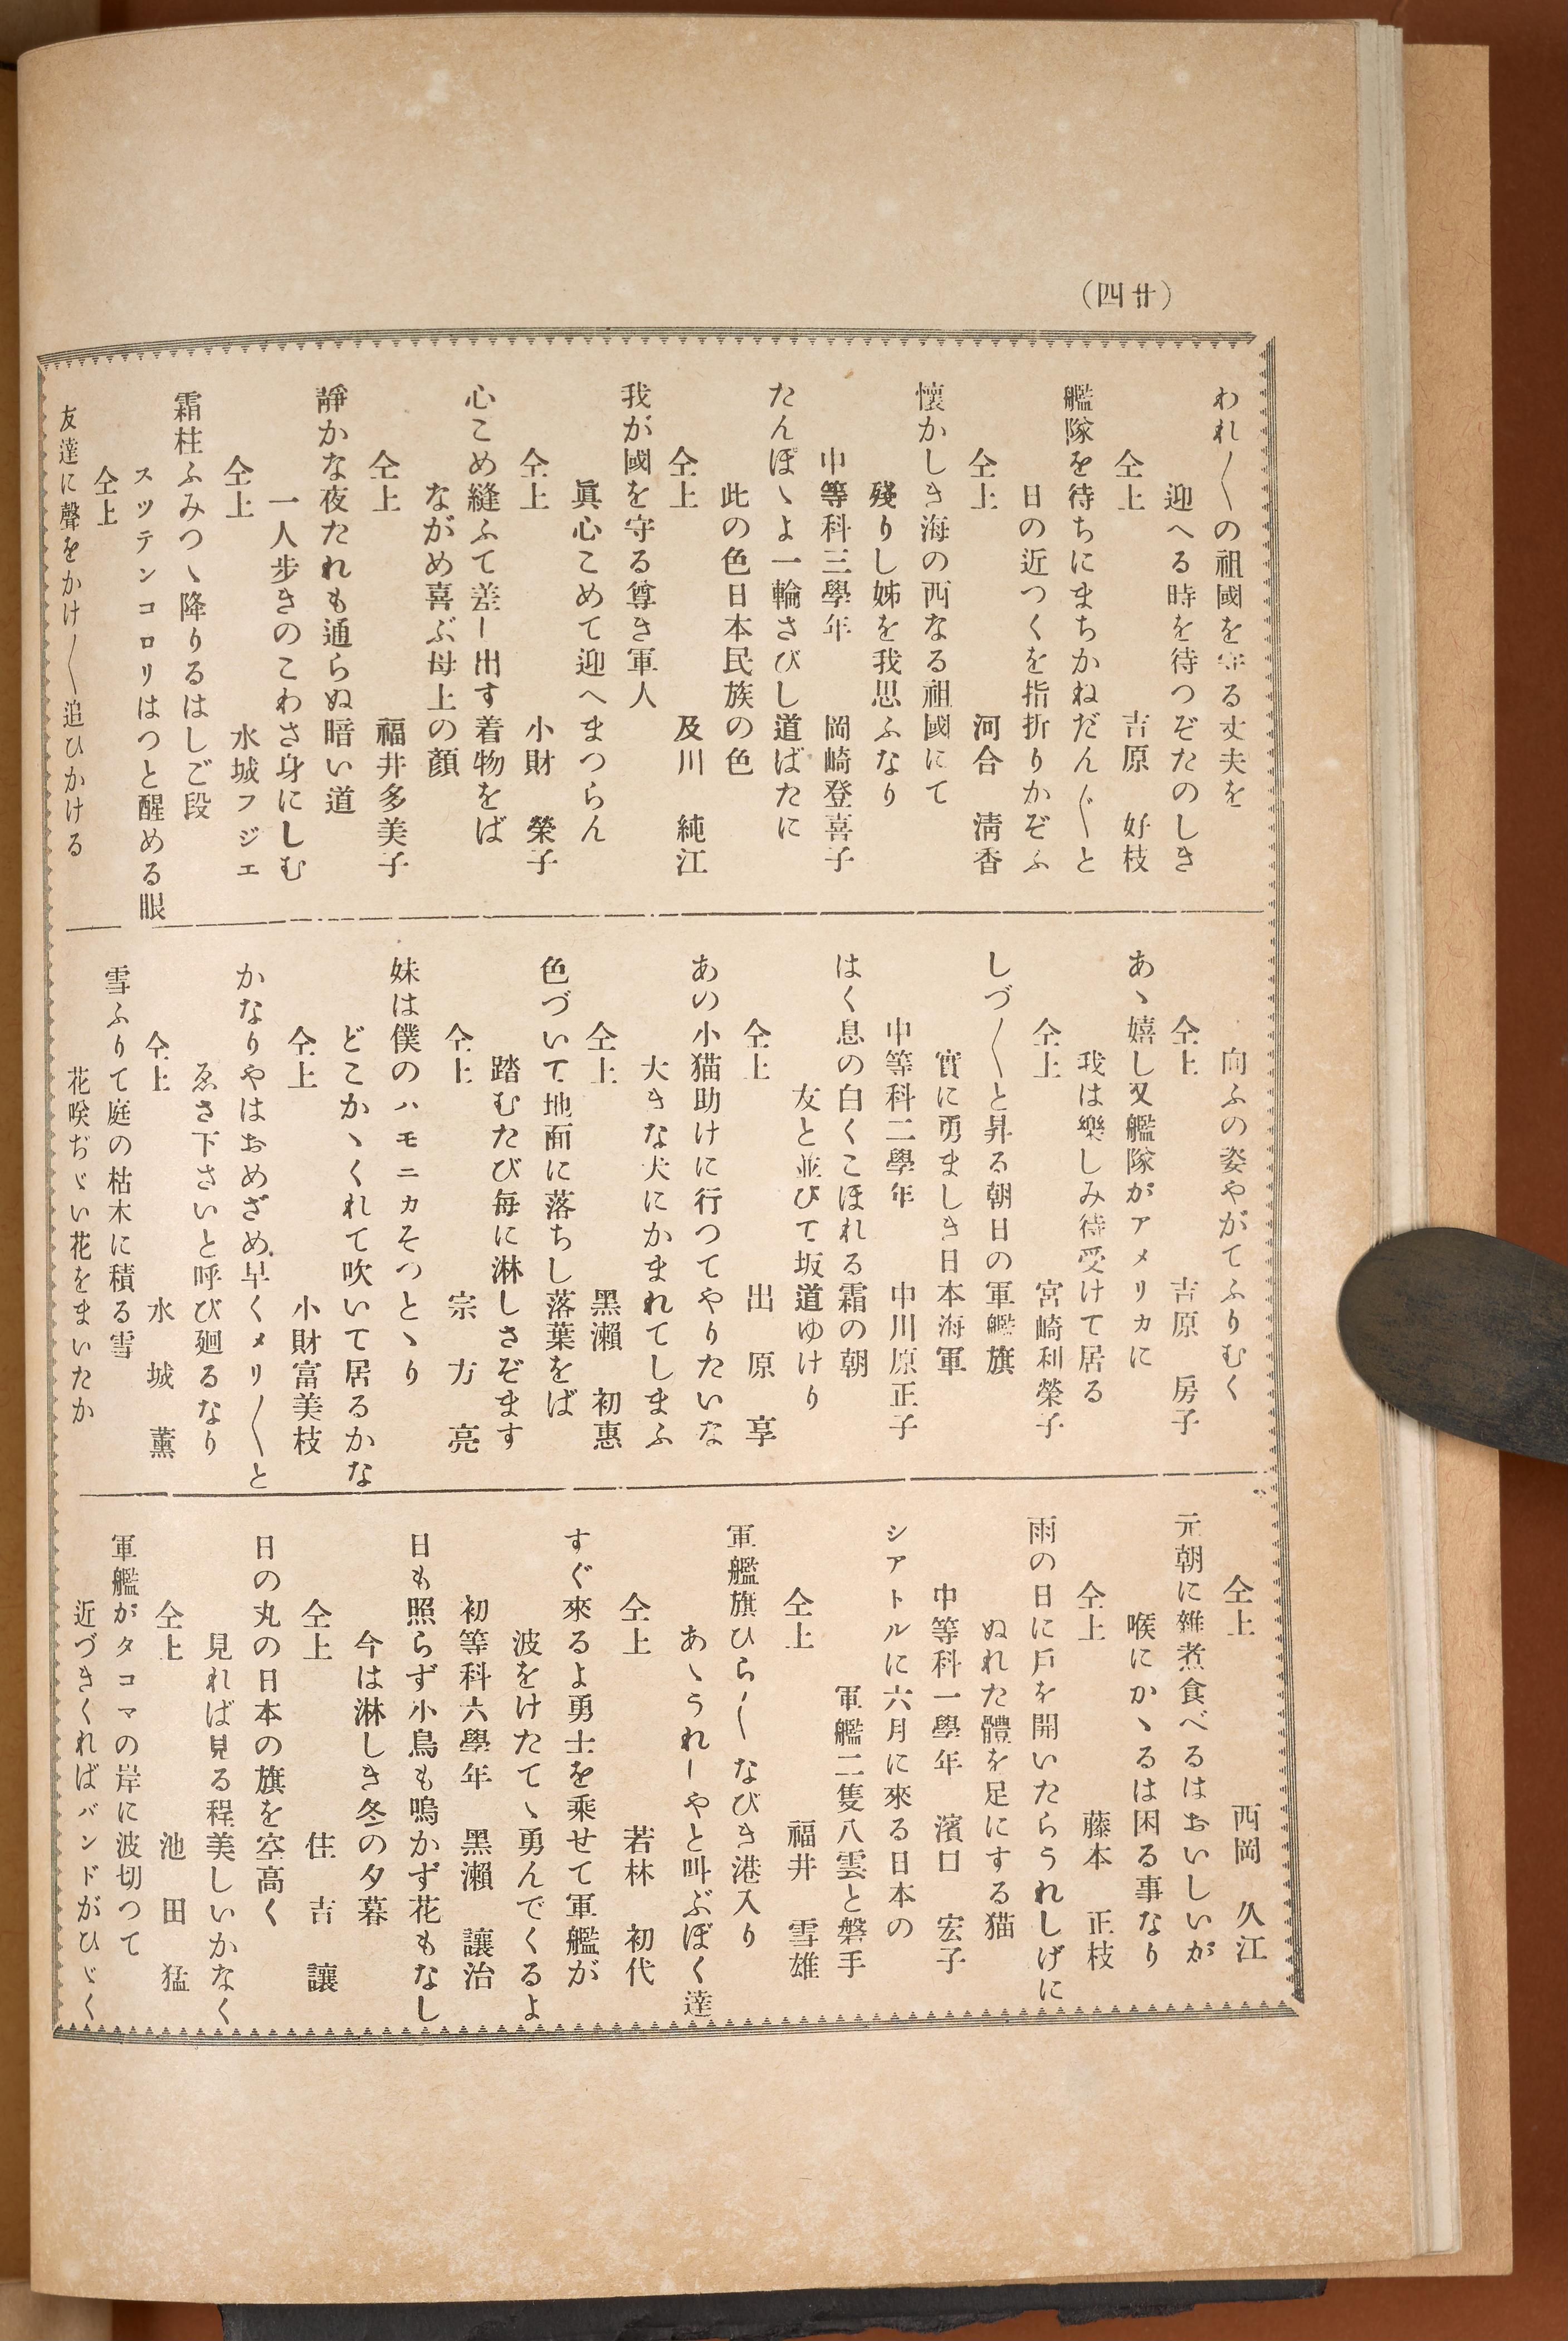 （廿四）
われ〳〵の祖國を守る丈夫を
迎へる時を待つぞたのしき
仝上　吉原　好枝
艦隊を待ちにまちかねだん〴〵と
日の近つくを指折りかぞふ
仝上　河合　淸香
懷かしき海の西なる祖國にて
殘りし姊を我思ふなり
中等科三學年　岡崎登喜子
たんぽゝよ一輪さびし道ばたに
此の色日本民族の色
仝上　及川　純江
我が國を守る尊き軍人
眞心こめて迎へまつらん
仝上　小財　榮子
心こめ縫ふて差し出す着物をば
ながめ喜ぶ母上の顏
仝上　福井多美子
靜かな夜たれも通らぬ暗い道
一人步きのこわさ身にしむ
仝上　水城フジエ
霜柱ふみつゝ降りるはしご段
スツテンコロリはつと醒める眼
仝上
友達に聲をかけ〳〵追ひかける
向ふの姿やがてふりむく
仝上　吉原　房子
あゝ嬉し又艦隊がアメリカに
我は樂しみ待受けて居る
仝上　宮崎利榮子
しづ〳〵と昇る朝日の軍艦旗
實に勇ましき日本海軍
中等科二學年　中川原正子
はく息の白くこほれる霜の朝
友と並びて坂道ゆけり
仝上　出原　享
あの小猫助けに行つてやりたいな
大きな犬にかまれてしまふ
仝上　黑瀨　初惠
色づいて地面に落ちし落葉をば
踏むたび每に淋しさぞます
仝上　宗方　亮
妹は僕のハモニカそつとゝり
どこかゝくれて吹いて居るかな
仝上　小財富美枝
かなりやはおめざめ早くメリ〳〵と
ゑさ下さいと呼び廻るなり
仝上　水城　薰
雪ふりて庭の枯木に積る雪
花咲ぢゞい花をまいたか
仝上　西岡　久江
元朝に雜煮食べるはおいしいが
喉にかゝるは困る事なり
仝上　藤本　正枝
雨の日に戶を開いたらうれしげに
ぬれた體を足にする猫
中等科一學年　濱口　宏子
シアトルに六月に來る日本の
軍艦二隻八雲と磐手
仝上　福井　雪雄
軍艦旗ひら〳〵なびき港入り
あゝうれしやと叫ぶぼく達
仝上　若林　初代
すぐ來るよ勇士を乘せて軍艦が
波をけたてゝ勇んでくるよ
初等科六學年　黑瀨　讓治
日も照らず小鳥も鳴かず花もなし
今は淋しき冬の夕暮
仝上　住吉　讓
日の丸の日本の旗を空高く
見れば見る程美しいかなく
仝上　池田　猛
軍艦がタコマの岸に波切つて
近づきくればバンドがひゞく